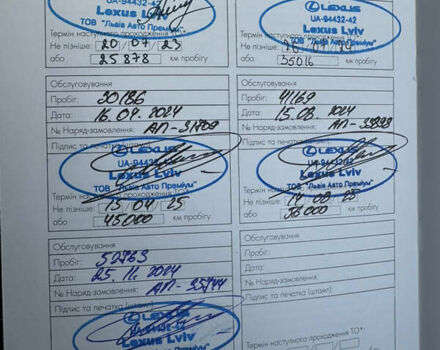 LEXUS
UA-94432-42
Lexus Lviv
ТОВ "Львів Авто Преміум"
Термін наступного проходження ТО*:
Не пізніше: 20 / 07 / 23
або 25878 км пробігу
LEXUS
UA-94432-42
Lexus Lviv
ТОВ "Львів Авто Преміум"
Термін наступного проходження ТО*:
Не пізніше:
або 35016 км пробігу
Обслуговування
Пробіг: 30186
Дата: 16.04.2024
№ Наряд-замовлення: АП-31709
Підпис та печатка (штамп):
LEXUS
UA-94432-42
Lexus Lviv
ТОВ "Львів Авто Преміум"
Термін наступного проходження ТО*:
Не пізніше: 15 / 04 / 25
або 45000 км пробігу
Обслуговування
Пробіг: 41169
Дата: 15.08.2024
№ Наряд-замовлення:
Підпис та печатка (штамп):
LEXUS
UA-94432-42
Lexus Lviv
ТОВ "Львів Авто Преміум"
Термін наступного проходження ТО*:
Не пізніше: 14 / 08 / 25
або 56000 км пробігу
Обслуговування
Пробіг: 52763
Дата: 25.11.2024
№ Наряд-замовлення: АП-35744
Підпис та печатка (штамп):
LEXUS
UA-94432-42
Lexus Lviv
Обслуговування
Пробіг:
Дата:
№ Наряд-замовлення:
Підпис та печатка (штамп):
Термін наступного проходження ТО*:
Не пізніше:
або